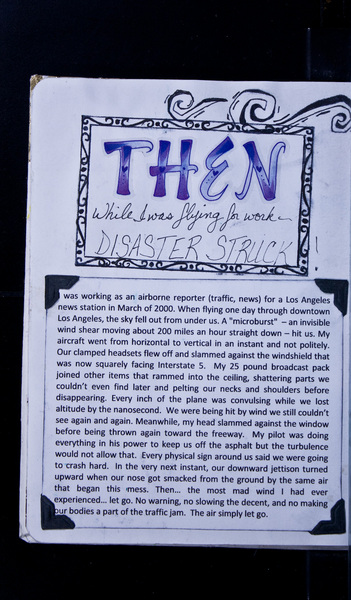 THEN
While I was flying for work
DISASTER STRUCK!
I was working as an airborne reporter (traffic, news) for a Los Angeles
news station in March of 2000. When flying one day through downtown
Los Angeles, the sky fell out from under us. A "microburst" – an invisible
wind shear moving about 200 miles an hour straight down – hit us. My
aircraft went from horizontal to vertical in an instant and not politely.
Our clamped headsets flew off and slammed against the windshield that
was now squarely facing Interstate 5. My 25 pound broadcast pack
joined other items that rammed into the ceiling, shattering parts we
couldn't even find later and pelting our necks and shoulders before
disappearing. Every inch of the plane was convulsing while we lost
altitude by the nanosecond. We were being hit by wind we still couldn't
see again and again. Meanwhile, my head slammed against the window
before being thrown again toward the freeway. My pilot was doing
everything in his power to keep us off the asphalt but the turbulence
would not allow that. Every physical sign around us said we were going
to crash hard. In the very next instant, our downward jettison turned
upward when our nose got smacked from the ground by the same air
that began this mess. Then... the most mad wind I had ever
experienced... let go. No warning, no slowing the decent, and no making
our bodies a part of the traffic jam. The air simply let go.